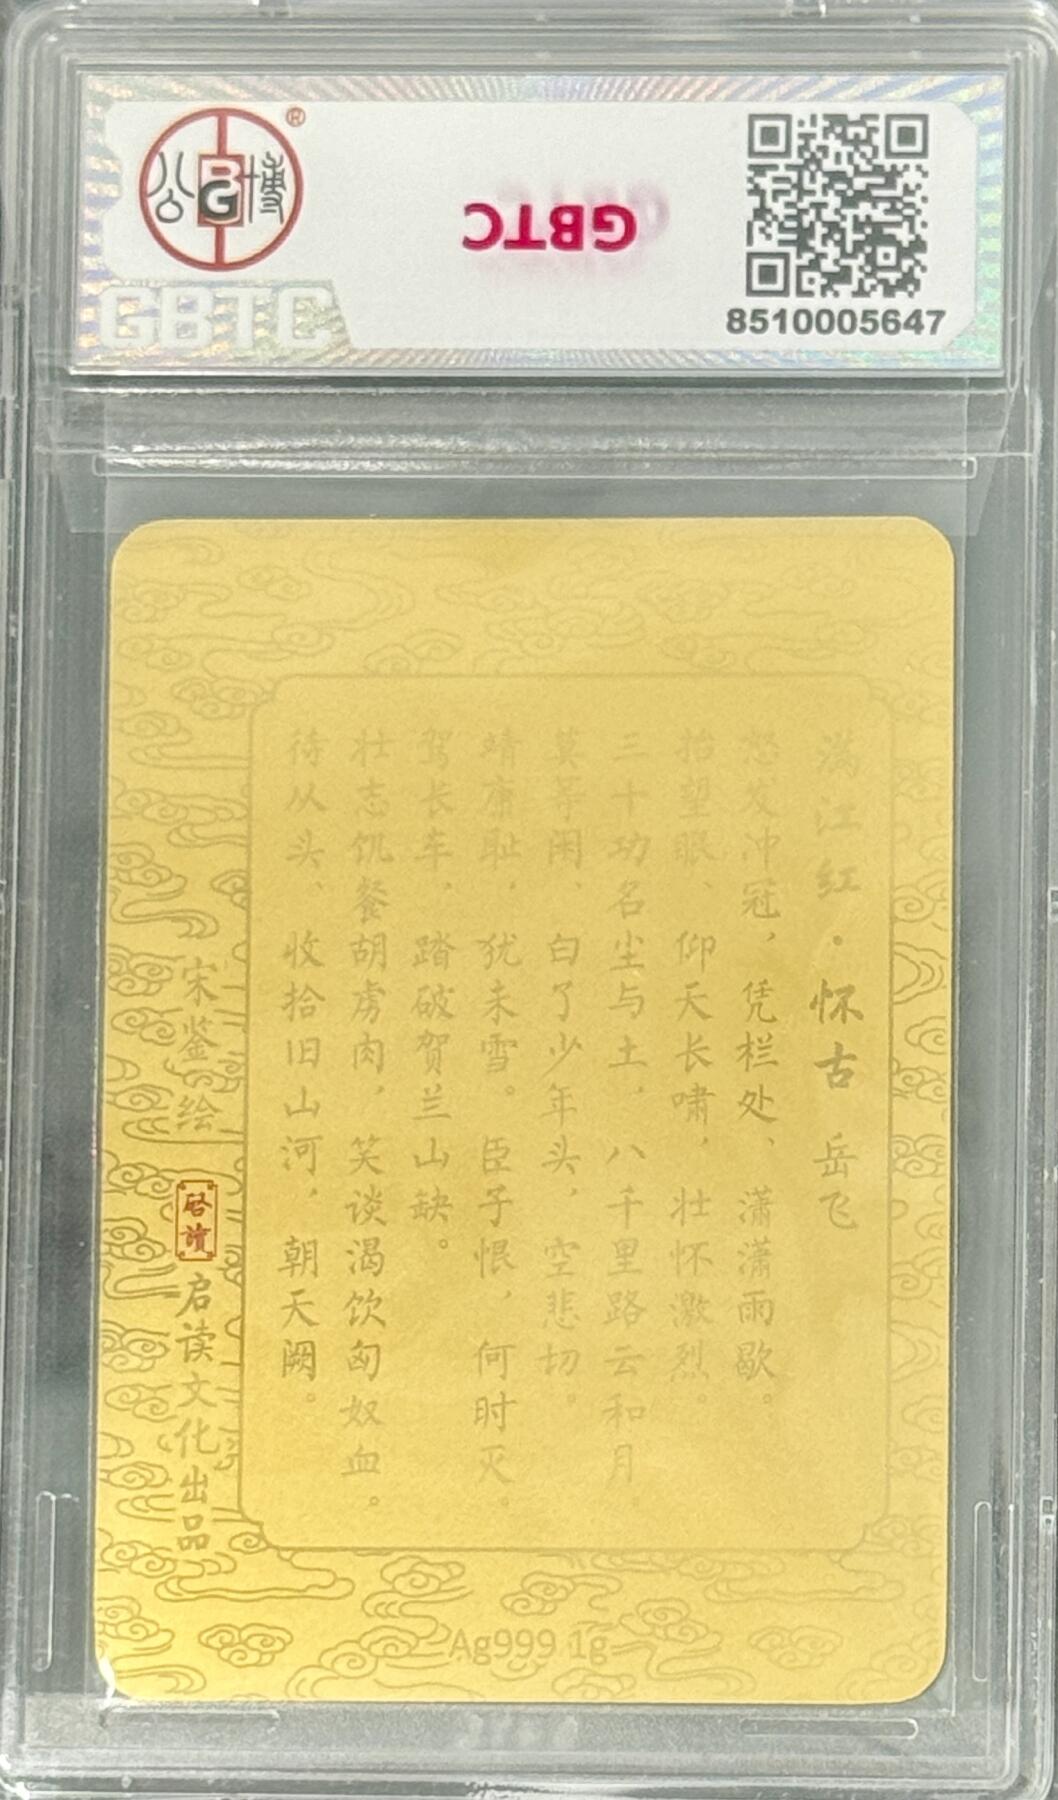 公 BG 博 ®
GBTC
GBTC
8510005647
满江红·怀古 岳飞
怒发冲冠，凭栏处、潇潇雨歇。
抬望眼、仰天长啸，壮怀激烈。
三十功名尘与土，八千里路云和月。
莫等闲、白了少年头，空悲切。
靖康耻，犹未雪。臣子恨，何时灭。
驾长车，踏破贺兰山缺。
壮志饥餐胡虏肉，笑谈渴饮匈奴血。
待从头、收拾旧山河，朝天阙。
宋鉴绘
啓讀
启读文化出品
Ag999 1g